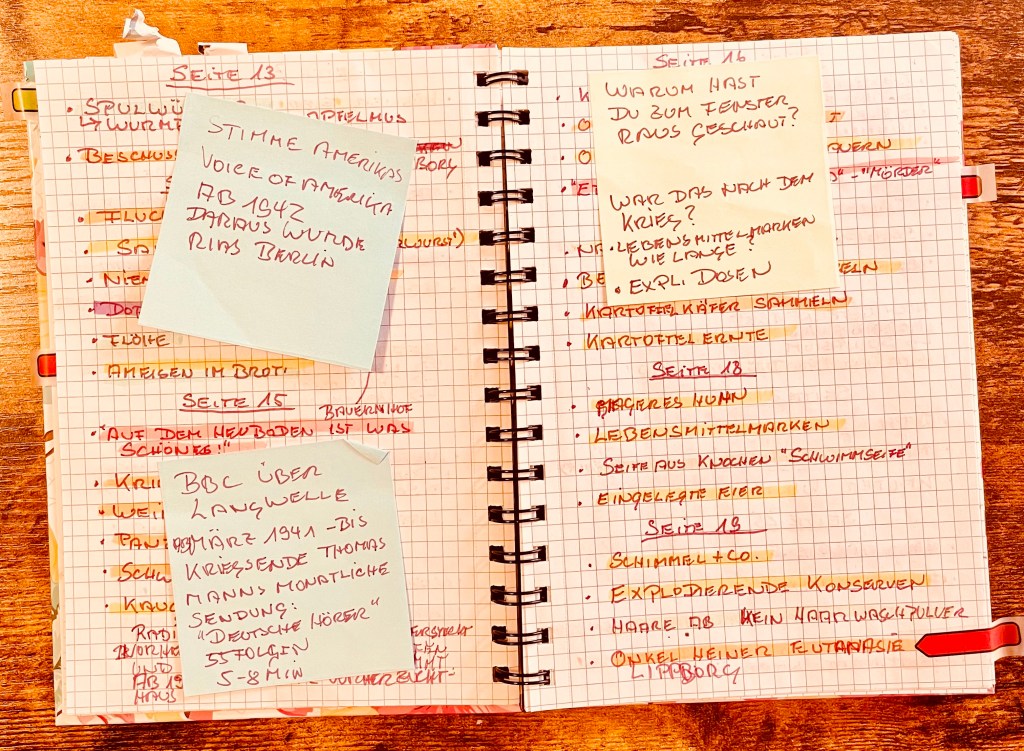 SEITE 13
• SPULWÜ
APFELMUS
↳ WURM
• BESCHUSS
BORG
STIMME AMERIKAS
VOICE OF AMERIKA
AB 1942
DARAUS WURDE
RIAS BERLIN
• FLUC
• SA
RWURST')
• NIEM
• DOT
• FLÖHE
• AMEISEN IM BROT!
SEITE 15
BAUERNHOF
• "AUF DEM HEUBODEN IST WAS
SCHÖNES!"
• KRI
• WEI
• PAN
• SCHW
• KAUG
RADI
VORHE
UND
AB 19
HAUS
BBC ÜBER
LANGWELLE
MÄRZ 1941 - BIS
KRIEGSENDE THOMAS
MANNS MONATLICHE
SENDUNG:
"DEUTSCHE HÖRER"
55 FOLGEN
5-8 MIN
SEITE 16
WARUM HAST
DU ZUM FENSTER
RAUS GESCHAUT?
WAR DAS NACH DEM
KRIEG?
• LEBENSMITTELMARKEN
WIE LANGE?
• EXPLI. DOSEN
AUERN
" - "MÖRDER"
• BE
ELN
• KARTOFFELKÄFER SAMMELN
• KARTOFFELERNTE
SEITE 18
• MAGERES HUHN
• LEBENSMITTELMARKEN
• SEIFE AUS KNOCHEN "SCHWIMMSEIFE"
• EINGELEGTE EIER
SEITE 19
• SCHIMMEL + CO.
• EXPLODIERENDE KONSERVEN
• HAARE AB KEIN HAARWASCHPULVER
• ONKEL HEINER EUTANASIE
LIPPBORG